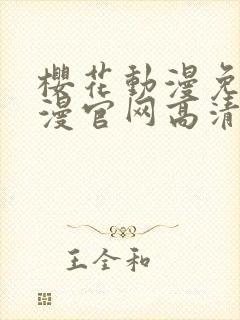 櫻花動漫免
漫官网高清
王全和